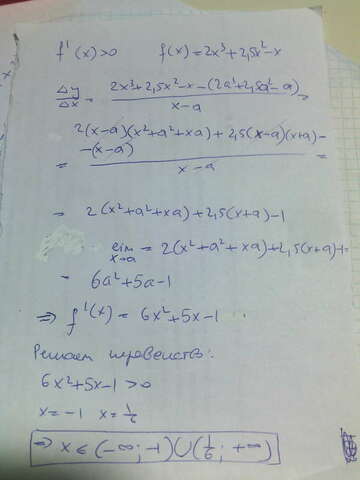 f'(x)>0 f(x)=2x³+2,5x²-x
Δy/Δx = (2x³+2,5x²-x-(2a³+2,5a²-a))/(x-a) =
= (2(x-a)(x²+a²+xa)+2,5(x-a)(x+a)-
-(x-a))/(x-a) =
= 2(x²+a²+xa)+2,5(x+a)-1
lim x→a = 2(x²+a²+xa)+2,5(x+a)+
= 6a²+5a-1
⇒ f'(x) = 6x²+5x-1
Решаем неравенств:
6x²+5x-1>0
x=-1 x=1/6
⇒ x ∈ (-∞; -1)∪(1/6; +∞)